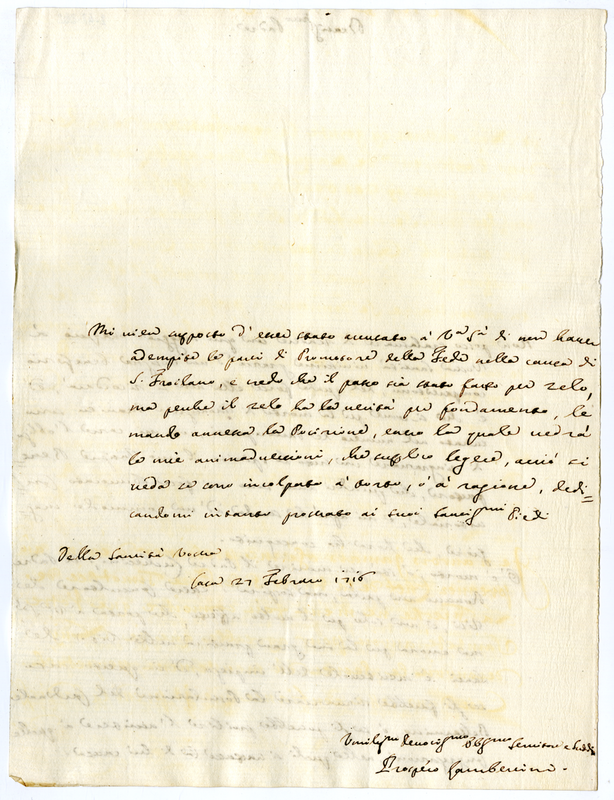 Mi vien supposto d'esser stato accusato à V.ra S.tà di non haver
adempito le parti di Promotore della Fede nella causa di
S. Froilano, e credo che il passo sia stato fatto per zelo,
ma perche il zelo ha la verità per fondamento, le
mando annessa la Posizione, entro la quale vedrà
le mie animadversioni, che supplico legere, acciò si
veda se sono incolpato à torto, ò à ragione, dedi=
candomi intanto prostrato ai suoi Santiss.mi Piedi
Della Santità Vostra
Casa 27 Febraro 1716
Umiliss.mo Devotiss.mo Obg.mo Servitore e Suddito
Prospero Lambertini.